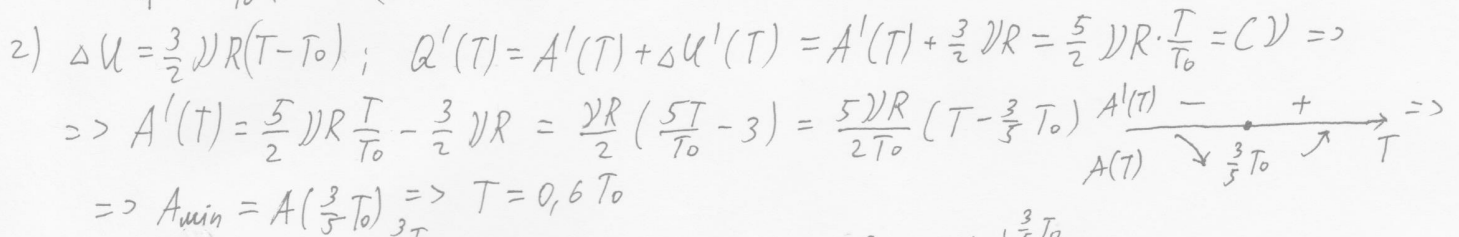 2) ΔU = 3/2 νR(T - T₀) ; Q'(T) = A'(T) + ΔU'(T) = A'(T) + 3/2 νR = 5/2 νR · T/T₀ = Cν =>
=> A'(T) = 5/2 νR T/T₀ - 3/2 νR = νR/2 (5T/T₀ - 3) = 5νR/2T₀ (T - 3/5 T₀) A'(T) - + =>
A(T) ↘ 3/5 T₀ ↗ T
=> Amin = A(3/5 T₀) => T = 0,6 T₀